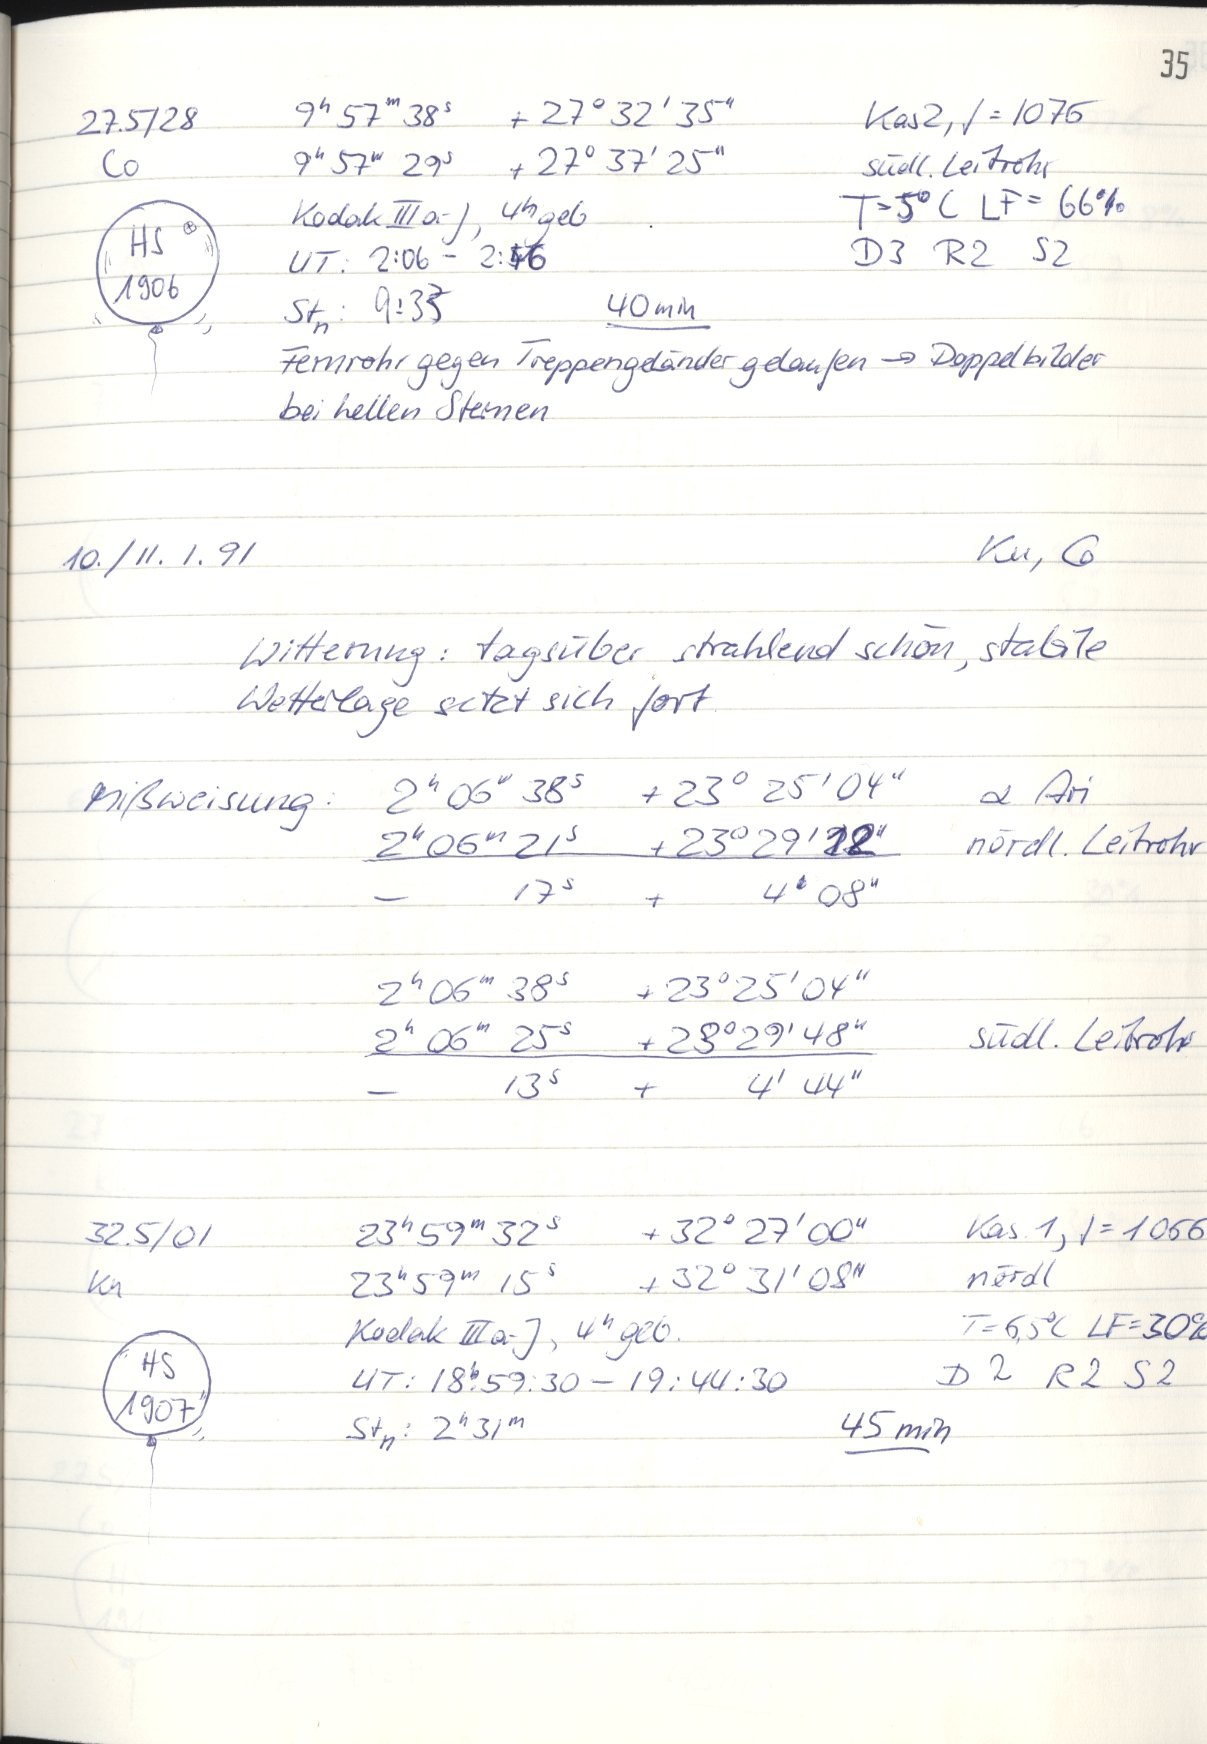 35
27.5/28 9ʰ 57ᵐ 38ˢ + 27° 32' 35" Kas 2, f = 1076
Co 9ʰ 57ᵐ 29ˢ + 27° 37' 25" südl. Leitrohr
Kodak III a-J, 4ʰ geb T = 5°C LF = 66%
HS 1906
UT: 2:06 - 2:46 D3 R2 S2
Stₙ: 9:33 40 min
Fernrohr gegen Treppengeländer gelaufen → Doppelbilder
bei hellen Sternen
10./11. 1. 91 Kn, Co
Witterung: tagsüber strahlend schön, stabile
Wetterlage setzt sich fort.
Mißweisung: 2ʰ 06ᵐ 38ˢ + 23° 25' 04" α Ari
2ʰ 06ᵐ 21ˢ + 23° 29' 12" nördl. Leitrohr
- 17ˢ + 4' 08"
2ʰ 06ᵐ 38ˢ + 23° 25' 04"
2ʰ 06ᵐ 25ˢ + 23° 29' 48" südl. Leitrohr
- 13ˢ + 4' 44"
32.5/01 23ʰ 59ᵐ 32ˢ + 32° 27' 00" Kas. 1, f = 1066
Kn 23ʰ 59ᵐ 15ˢ + 32° 31' 08" nördl
Kodak III a-J, 4ʰ geb. T = 6,5°C LF = 30%
HS 1907
UT: 18ʰ:59:30 - 19:44:30 D 2 R2 S2
Stₙ: 2ʰ 31ᵐ 45 min